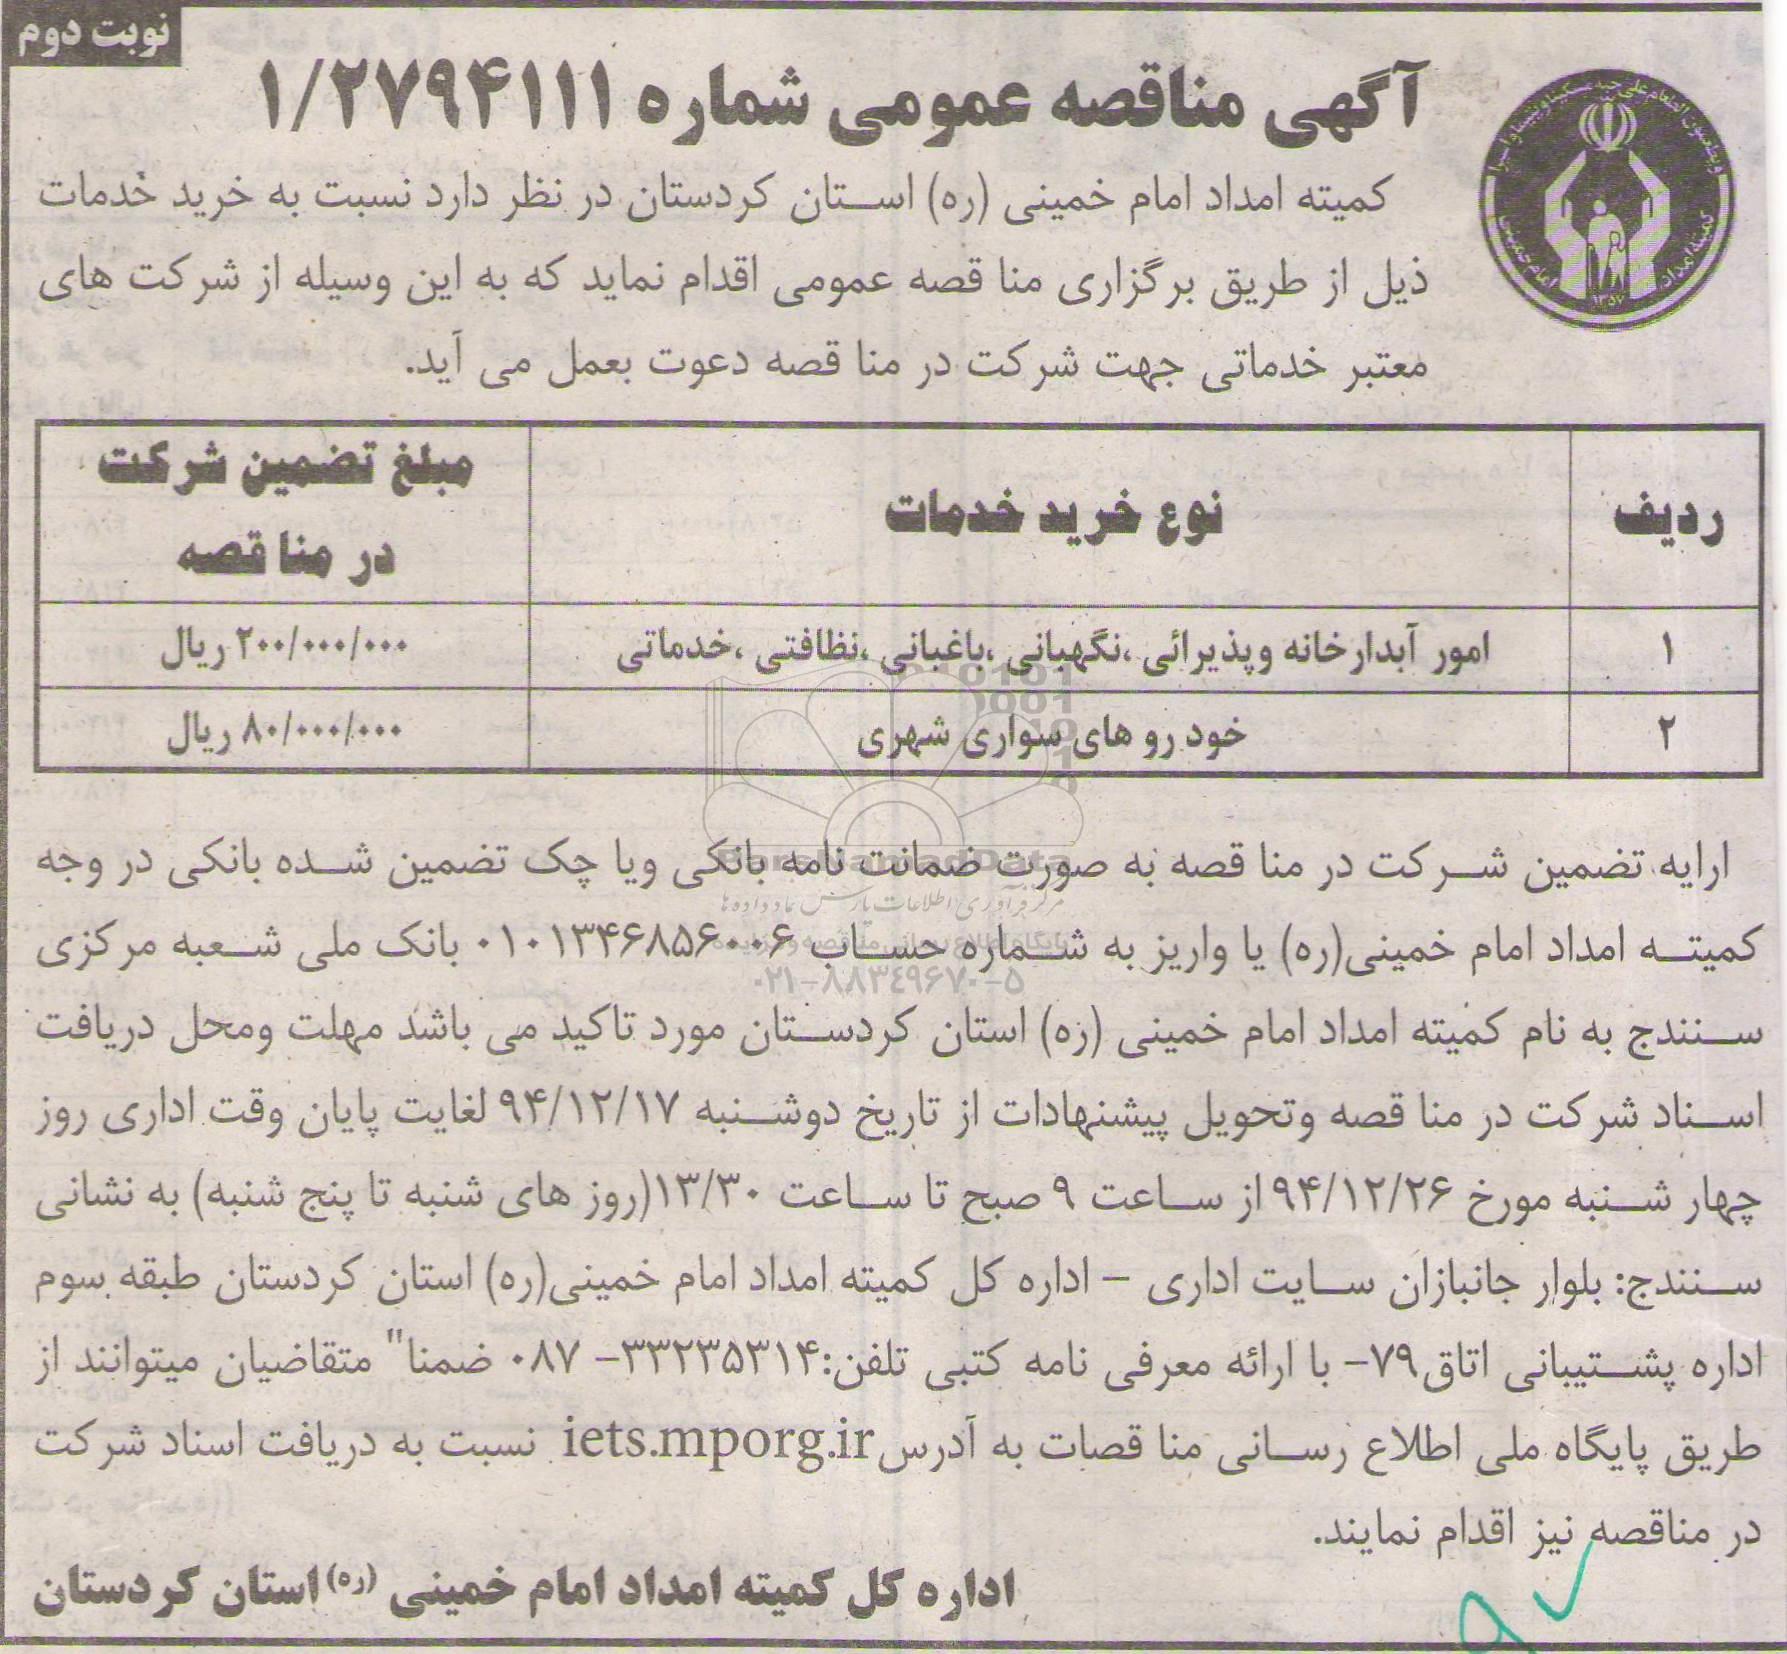 نوبت دوم
آگهی مناقصه عمومی شماره ۱/۲۷۹۴۱۱۱
کمیته امداد امام خمینی (ره) استان کردستان در نظر دارد نسبت به خرید خدمات
ذیل از طریق برگزاری منا قصه عمومی اقدام نماید که به این وسیله از شرکت های
معتبر خدماتی جهت شرکت در منا قصه دعوت بعمل می آید.
کمیته امداد
امام خمینی
۱۳۵۷
ردیف
نوع خرید خدمات
مبلغ تضمین شرکت
در منا قصه
۱
امور آبدارخانه وپذیرائی ،نگهبانی ،باغبانی ،نظافتی ،خدماتی
۲۰۰/۰۰۰/۰۰۰ ریال
۲
خود رو های سواری شهری
۸۰/۰۰۰/۰۰۰ ریال
ارایه تضمین شرکت در منا قصه به صورت ضمانت نامه بانکی ویا چک تضمین شده بانکی در وجه
کمیته امداد امام خمینی(ره) یا واریز به شماره حساب ۰۱۰۱۳۴۶۸۵۶۰۰۶ بانک ملی شعبه مرکزی
سنندج به نام کمیته امداد امام خمینی (ره) استان کردستان مورد تاکید می باشد مهلت ومحل دریافت
اسناد شرکت در منا قصه وتحویل پیشنهادات از تاریخ دوشنبه ۹۴/۱۲/۱۷ لغایت پایان وقت اداری روز
چهار شنبه مورخ ۹۴/۱۲/۲۶ از ساعت ۹ صبح تا ساعت ۱۳/۳۰(روز های شنبه تا پنج شنبه) به نشانی
سنندج: بلوار جانبازان سایت اداری – اداره کل کمیته امداد امام خمینی(ره) استان کردستان طبقه سوم
اداره پشتیبانی اتاق۷۹- با ارائه معرفی نامه کتبی تلفن:۳۳۲۳۵۳۱۴- ۰۸۷ ضمنا" متقاضیان میتوانند از
طریق پایگاه ملی اطلاع رسانی منا قصات به آدرس iets.mporg.ir نسبت به دریافت اسناد شرکت
در مناقصه نیز اقدام نمایند.
اداره کل کمیته امداد امام خمینی (ره) استان کردستان
ParsNamadData
مرکز فرآوری اطلاعات پارس نماد داده ها
پایگاه اطلاع رسانی مناقصه و مزایده
۰۲۱-۸۸۳۴۹۶۷۰-۵